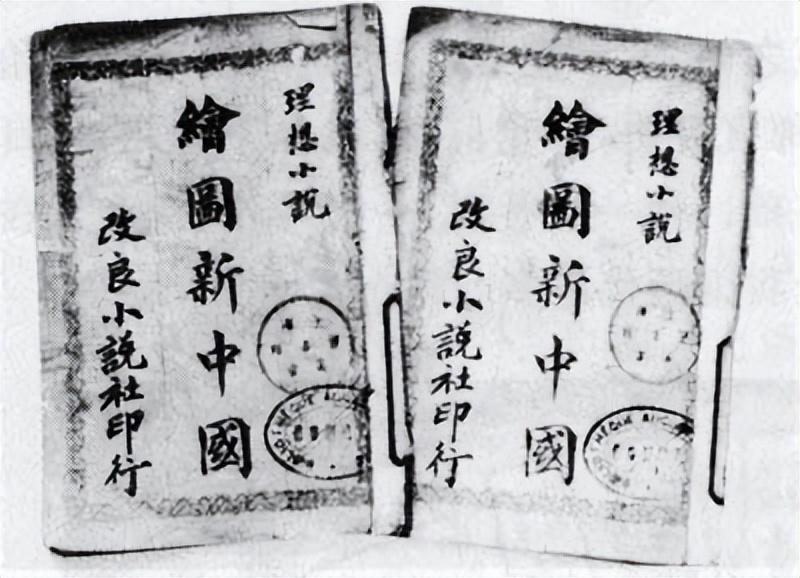 理想小說
繪圖新中國
改良小說社印行
理想小說
繪圖新中國
改良小說社印行